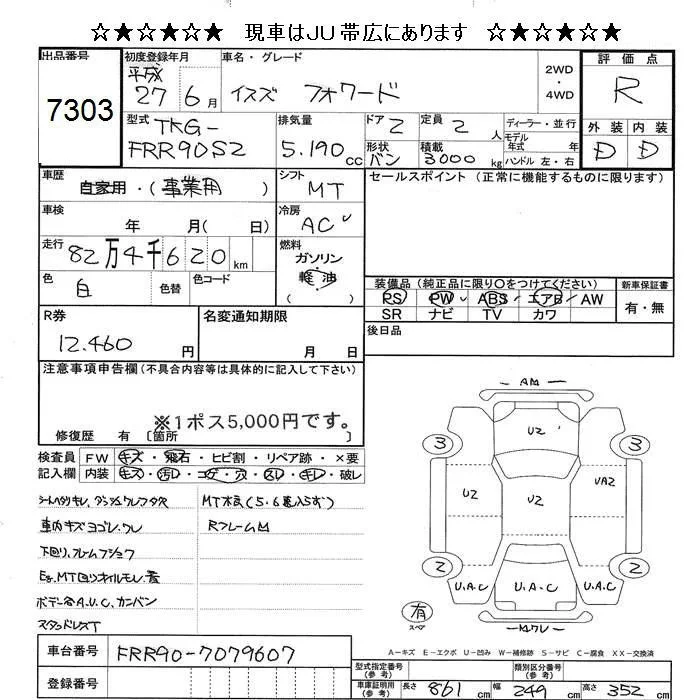 ☆★☆★☆★ 現車はJU帯広にあります ☆★☆★☆★
出品番号
7303
初度登録年月
平成
27 6月
車名・グレード
イスズ フォワード
2WD
・
4WD
評価点
R
型式
TKG-
FRR90S2
排気量
5.190cc
ドア 2
定員 2 人
ディーラー・並行
モデル
年式 年
形状 バン
積載 3000kg
ハンドル 左・右
外装 内装
D D
車歴
自家用・(事業用)
シフト
MT
セールスポイント (正常に機能するものに限ります)
車検
年 月( 日)
冷房
AC
走行
82万4千620km
燃料
ガソリン
軽油
( )
色
白
色替
色コード
装備品 (純正品に限り〇をつけてください)
PS PW ABS エアB AW
SR ナビ TV カワ
新車保証書
有・無
R券
12.460円
名変通知期限
月 日
後日品
注意事項申告欄(不具合内容等は具体的に記入して下さい)
※1ポス5,000円です。
修復歴 有 〔箇所
検査員
記入欄
FW キズ・飛石・ヒビ割・リペア跡・×要
内装 キズ・汚レ・コゲ・穴・スレ・キレ・破レ
シートヘタリキレ、ダッシュワレフタ欠
車内キズヨゴレ、ワレ
下回り、フレームフショク
Eg、MT回りオイルモレ
ボデー各A.U.C、カンバン
MT不良(5.6速入らず)
Rフレーム凹
車台番号
FRR90-7079607
登録番号
AM
U2
3 3
U2 U2 UA2
2 2
U.A.C U.A.C U.A.C
有
スペア
A-キズ E-エクボ U-凹み W-補修跡 S-サビ C-腐食 XX-交換済
型式指定番号
(参考)
類別区分番号
(参考)
車庫証明用
(参考)
長さ 861cm 幅 249cm 高さ 352cm